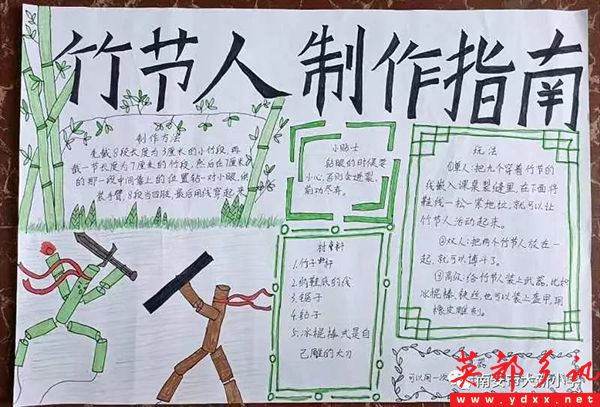 竹节人 制作指南
制作方法
先截8段长度为3厘米的小竹段,再
截一节长度为7厘米的竹段,然后在7厘米
的那一段中间靠上的位置钻一对小眼,供
装手臂,8段当四肢,最后用线穿起来。
小贴士
钻眼的时候要
小心,否则会迸裂,
前功尽弃。
材料
1.竹子1根
2.纳鞋底的线
3.锯子
4.钻子
5.冰棍棒或是自
己雕的大刀
玩法
①单人:把九个穿着竹节的
线嵌入课桌裂缝里,在下面将
鞋线一松一紧地拉,就可以让
竹节人活动起来。
②双人:把两个竹节人放在一
起,就可以搏斗了。
③高级:给竹节人装上武器,比如
冰棍棒、铁丝,也可以装上盔甲,用
橡皮雕刻。
可以用一次
南安市
英都乡讯
www.ydxx.net